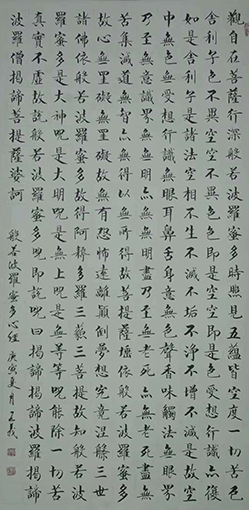 觀自在菩薩行深般若波羅蜜多時照見五蘊皆空度一切苦厄
舍利子色不異空空不異色色即是空空即是色受想行識亦復
如是舍利子是諸法空相不生不滅不垢不淨不增不減是故空
中無色無受想行識無眼耳鼻舌身意無色聲香味觸法無眼界
乃至無意識界無無明亦無無明盡乃至無老死亦無老死盡無
苦集滅道無智亦無得以無所得故菩提薩埵依般若波羅蜜多
故心無罣礙無罣礙故無有恐怖遠離顛倒夢想究竟涅槃三世
諸佛依般若波羅蜜多故得阿耨多羅三藐三菩提故知般若波
羅蜜多是大神咒是大明咒是無上咒是無等等咒能除一切苦
真實不虛故說般若波羅蜜多咒即說咒曰揭諦揭諦波羅揭諦
波羅僧揭諦菩提薩婆訶
般若波羅蜜多心經 庚寅夏月王義